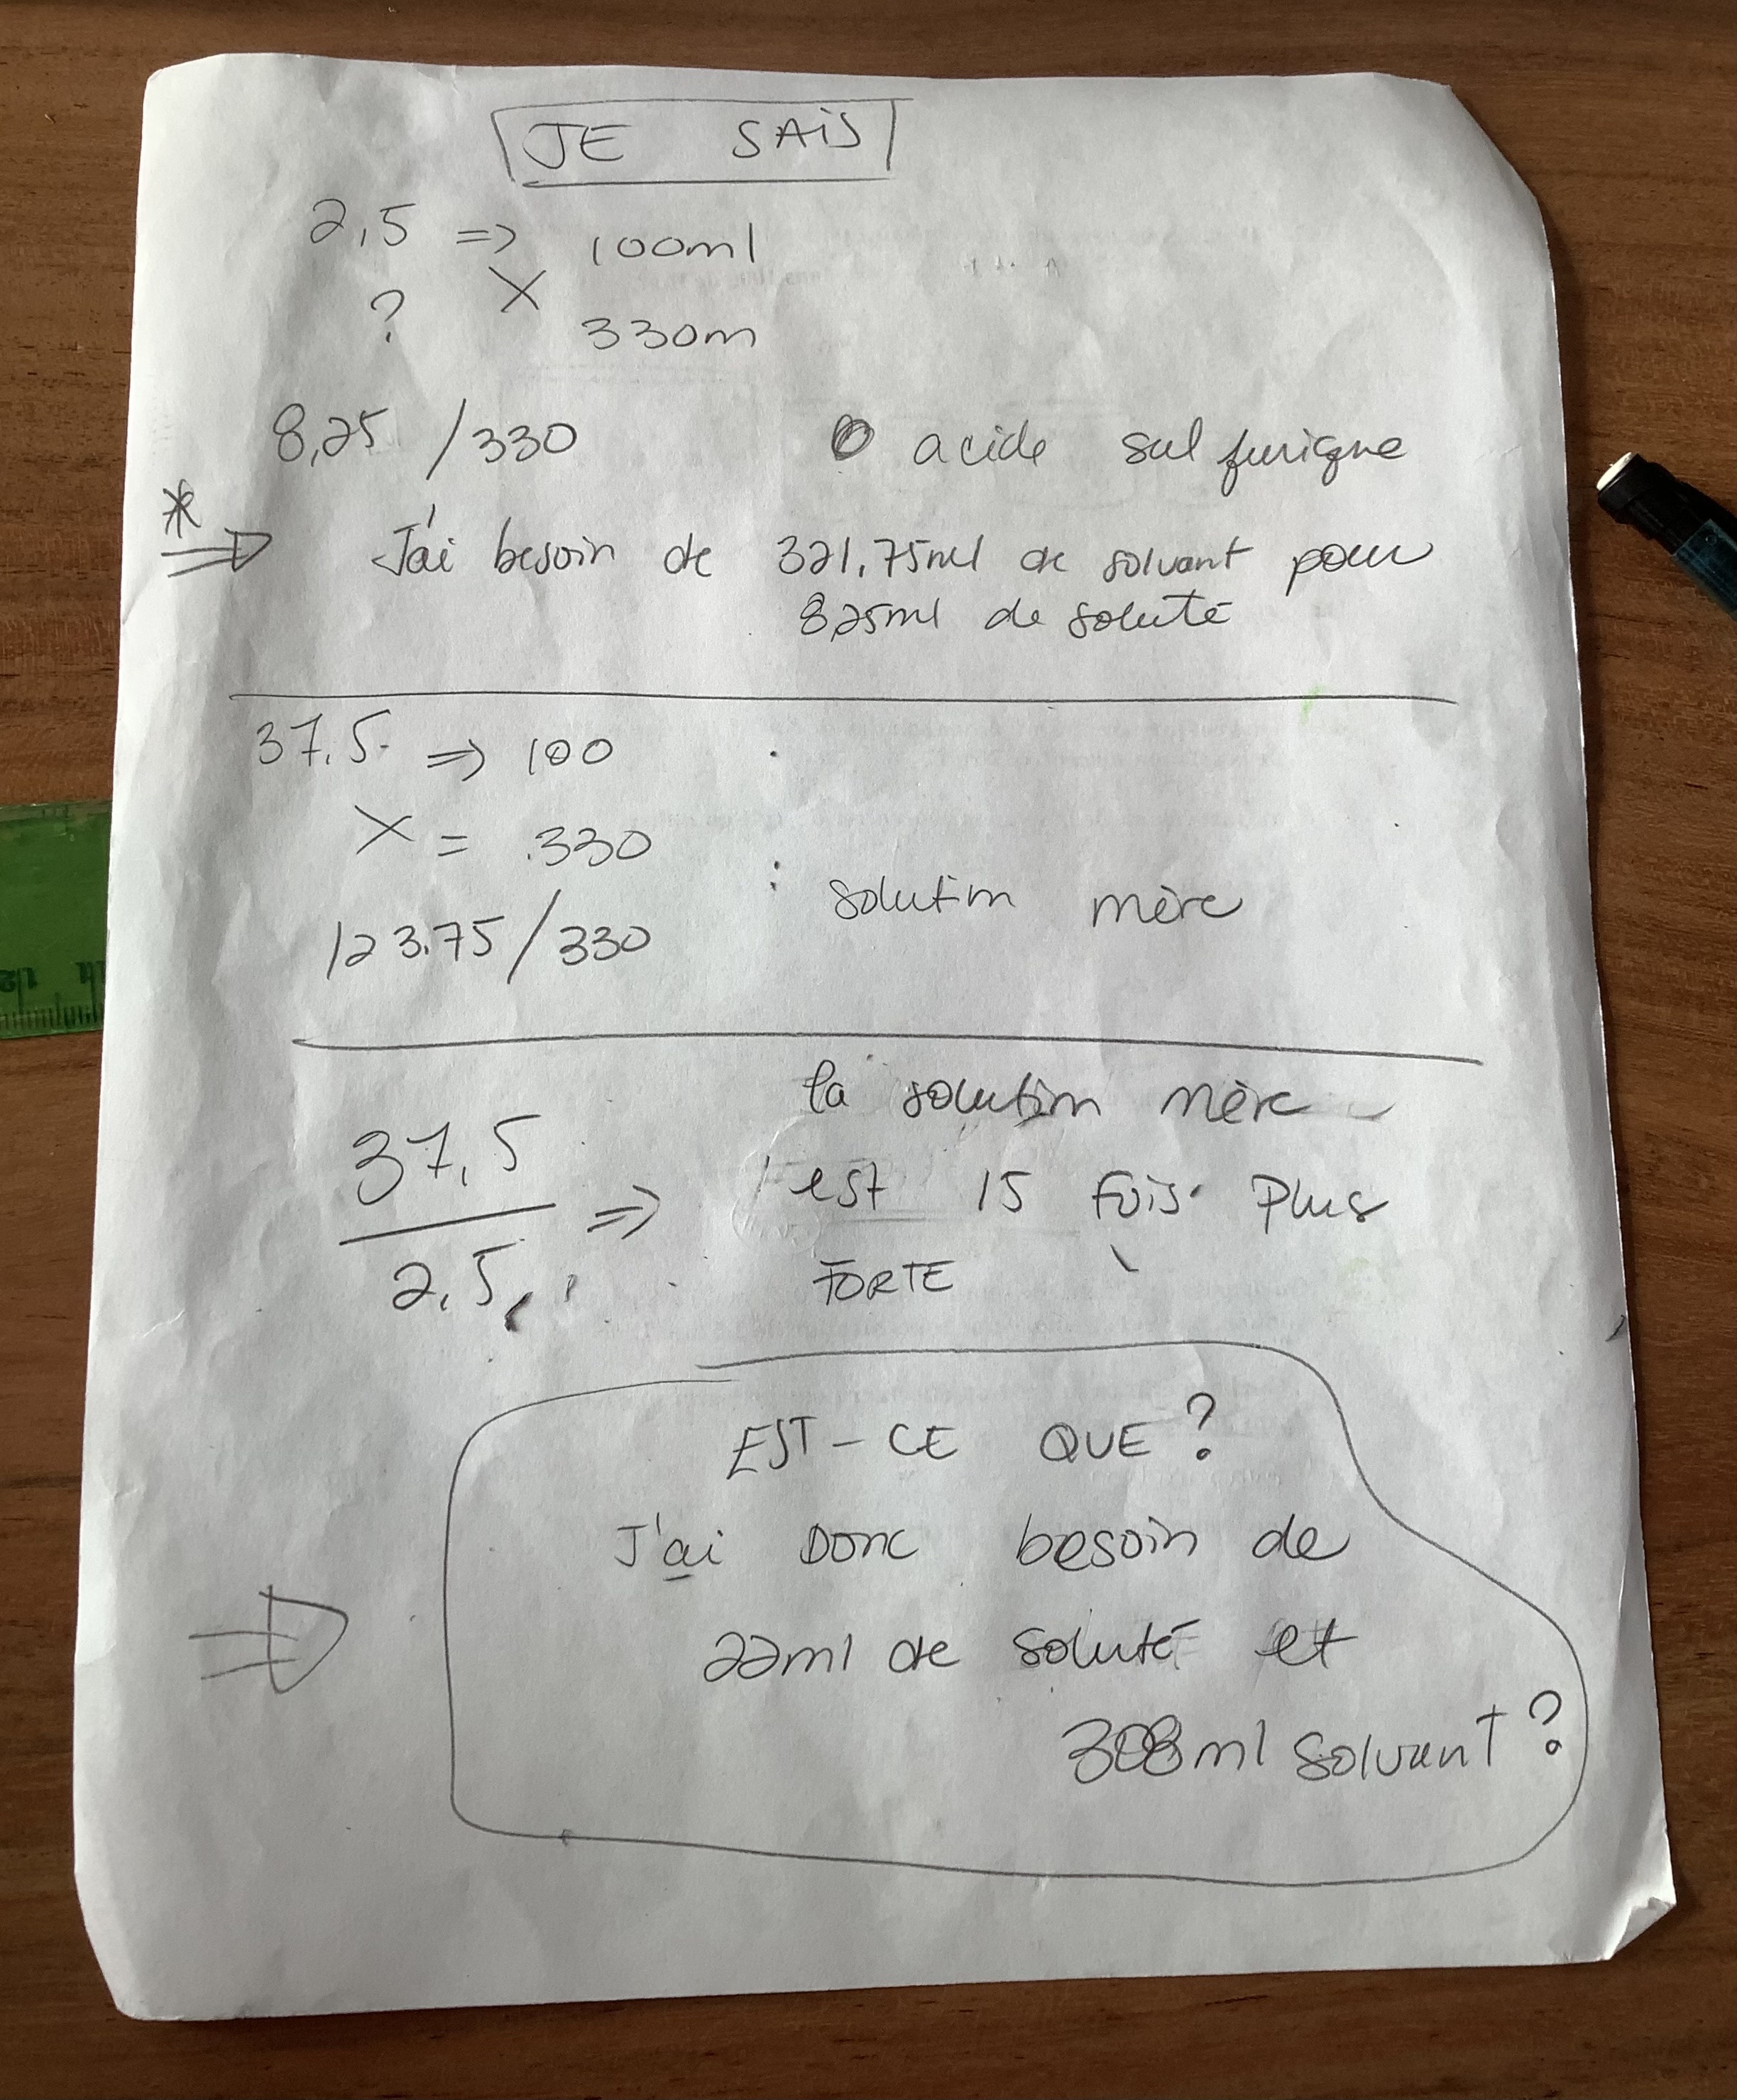 JE SAIS
2,5 => 100ml
? X 330m
8,25 /330 acide sulfurique
* => J'ai besoin de 321,75ml de solvant pour
8,25ml de soluté
37,5 => 100
X = 330
: solution mère
123.75/330
la solution mère
37,5
est 15 fois plus
=>
2,5
FORTE
EST-CE QUE?
J'ai Donc besoin de
=> 22ml de soluté et
308ml solvant?